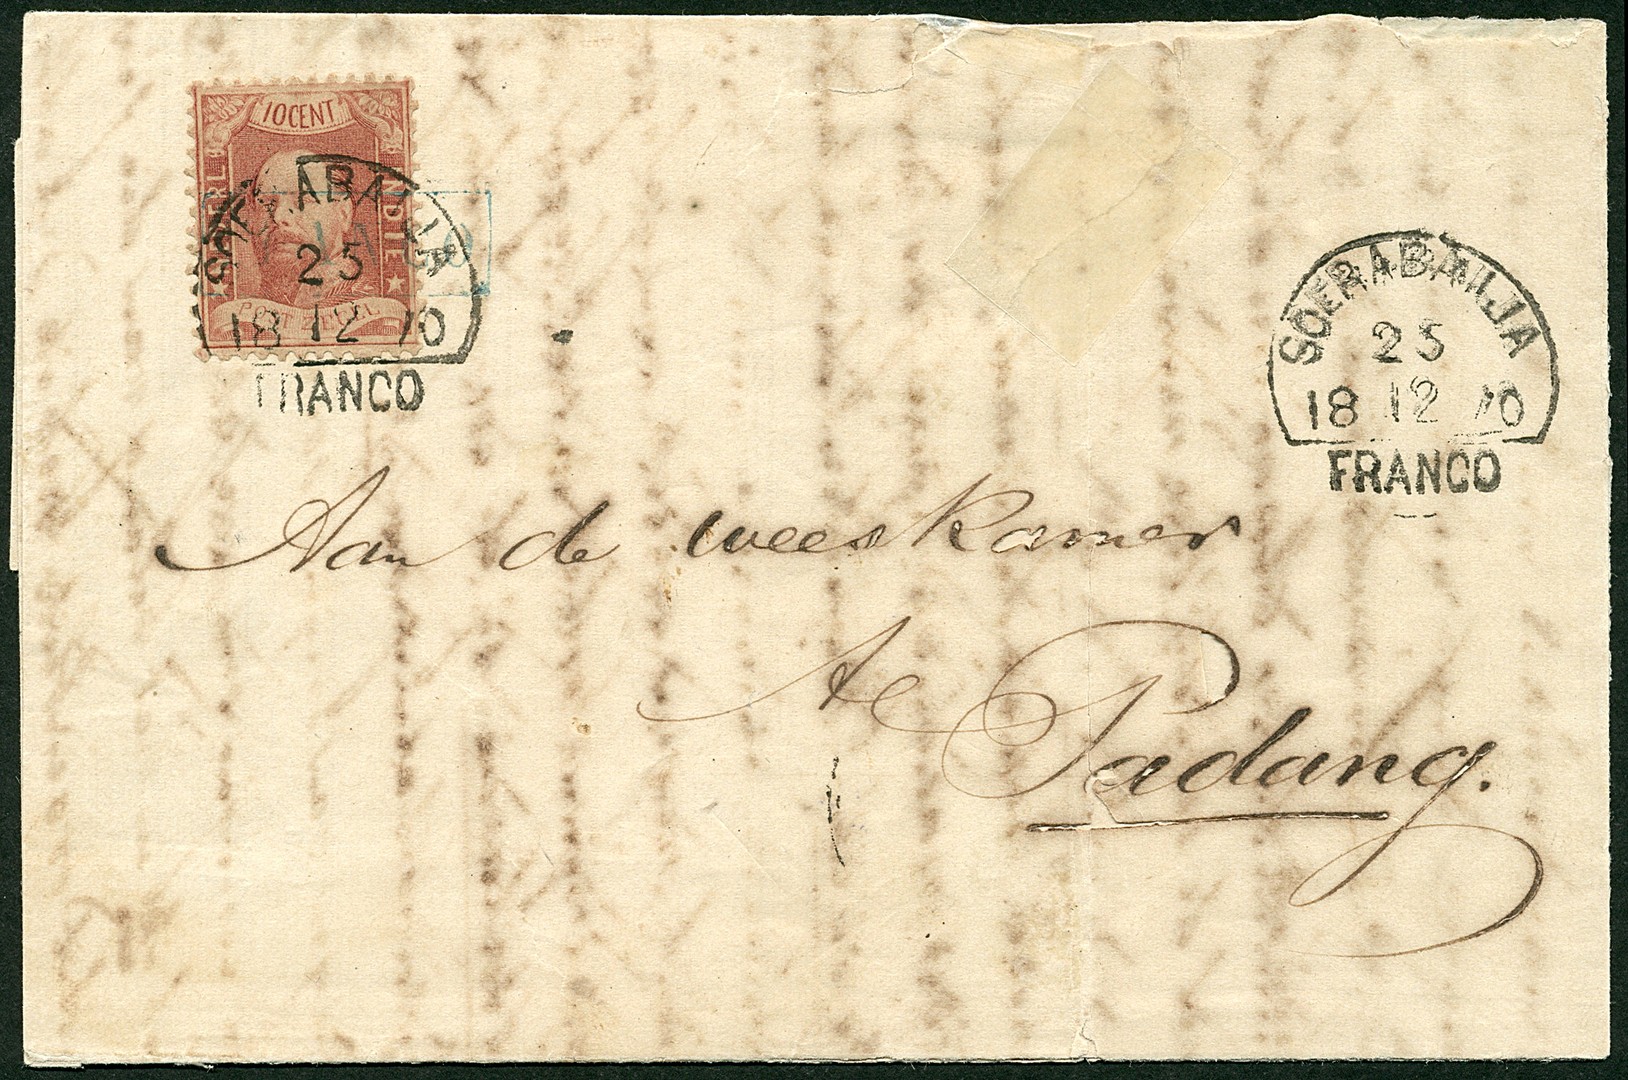 10 CENT
NDIE
POSTZEGEL
SOERABAIJA
25
18 12 70
FRANCO
SOERABAIJA
25
18 12 70
FRANCO
Aan de weeskamer
te
Padang.